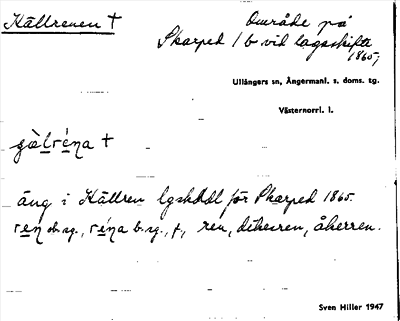 Källrenen †
Område på
Skarped 1 b vid lagaskifte
1865,
Ullångers sn, Ångermanl. s. doms. tg.
Västernorrl. l.
gàlréna †
äng i Källren lgshdl för Skarped 1865.
ren ob. sg., réna b. sg., f., ren, dikesren, åkerren.
Sven Hiller 1947